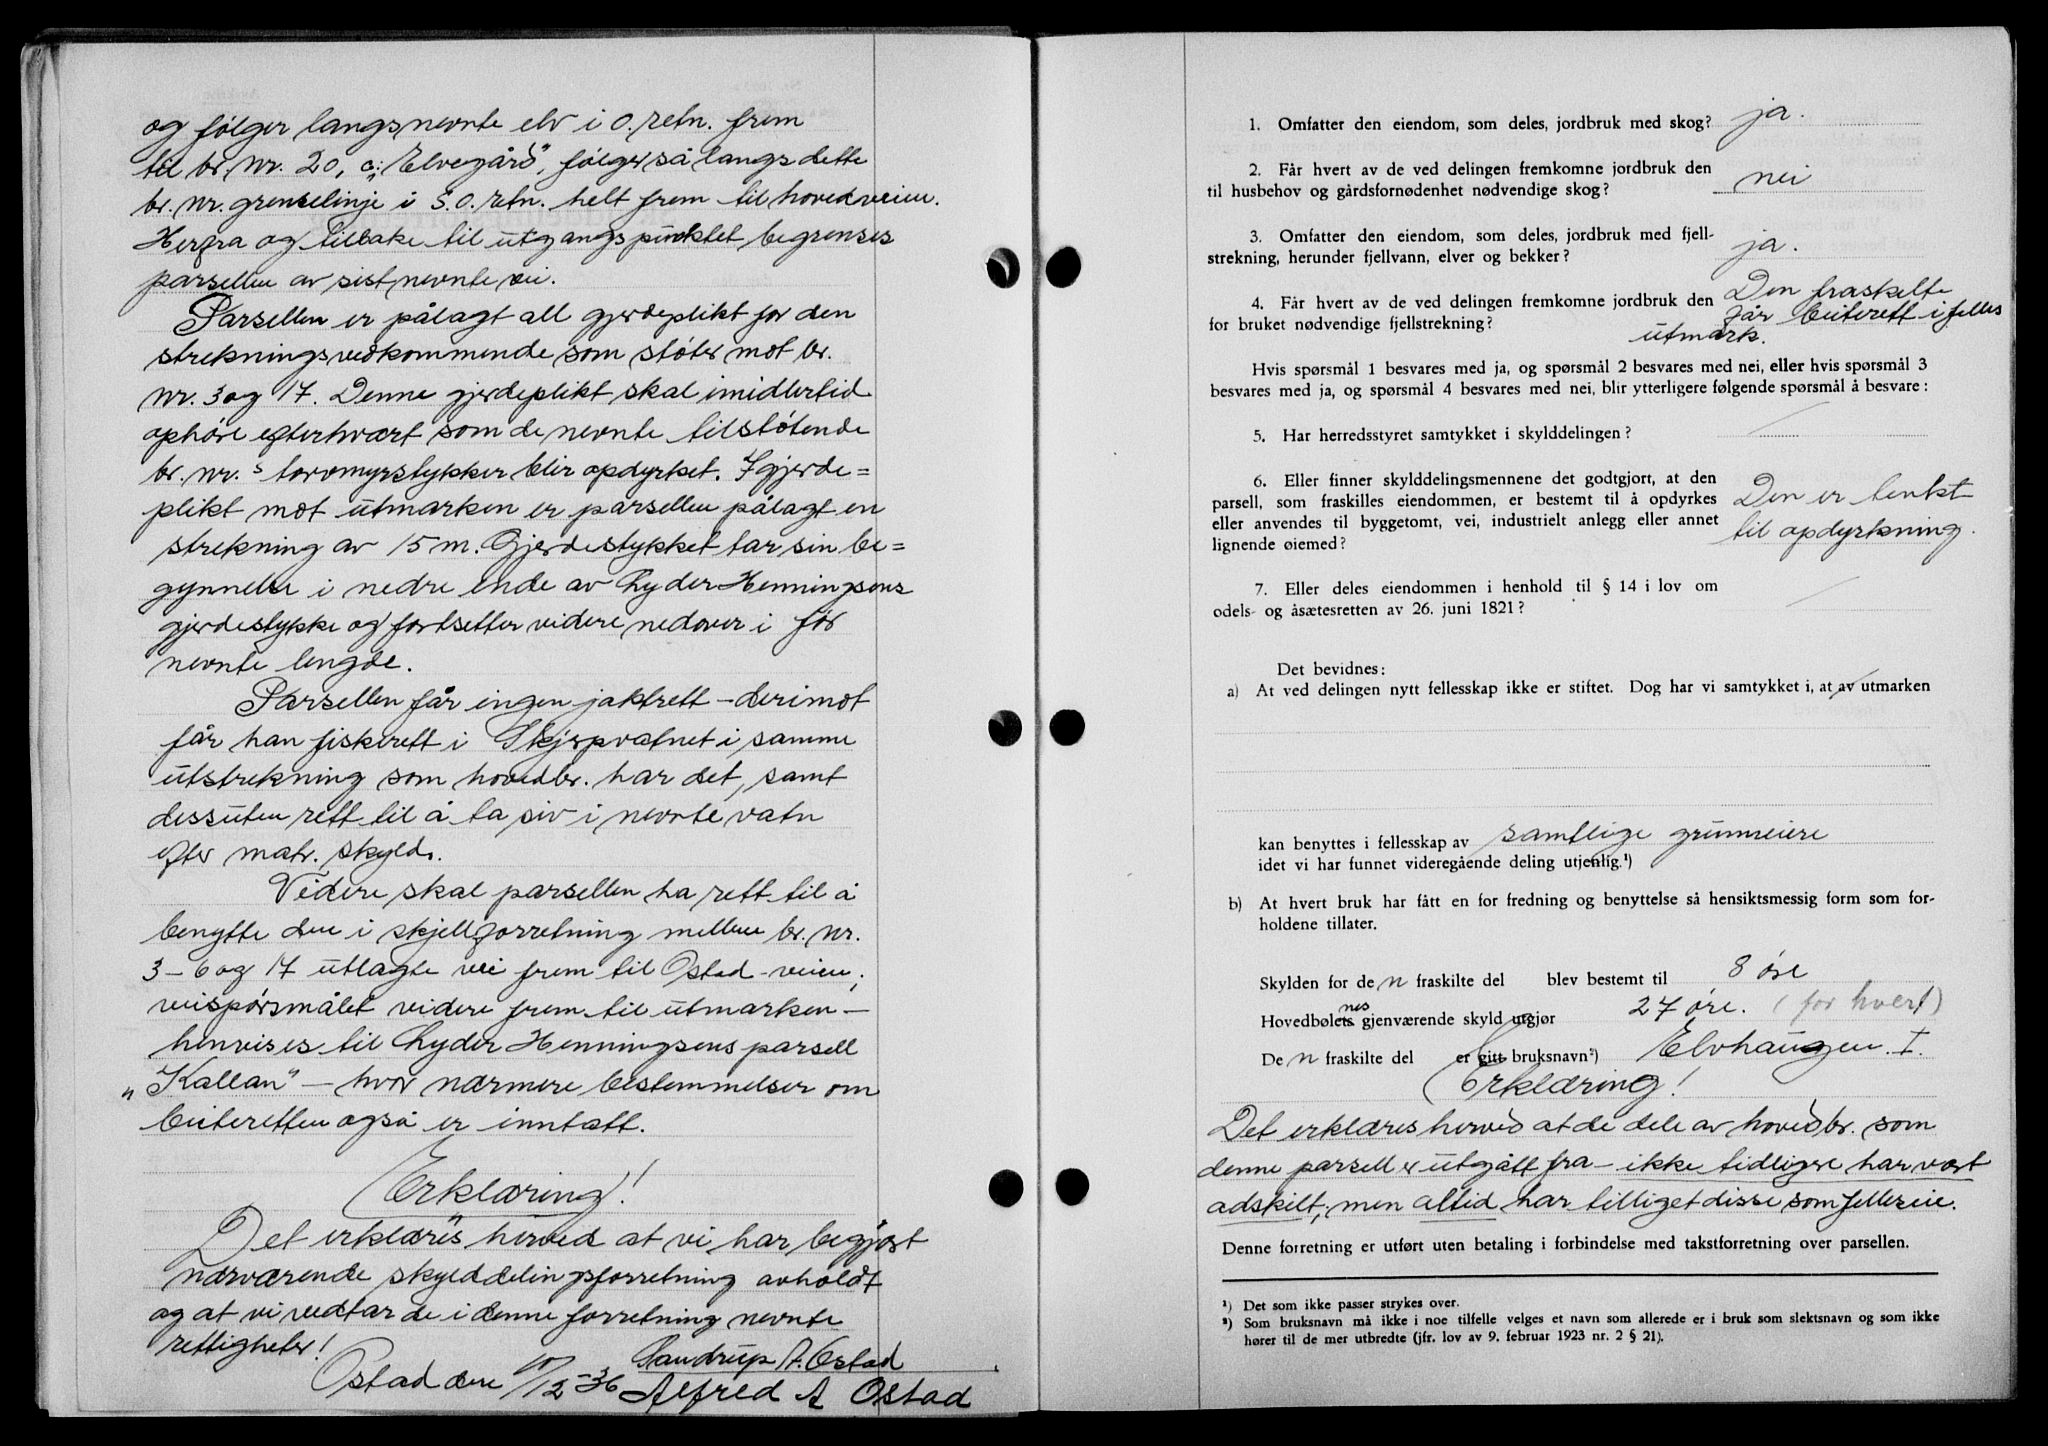 og følger langs nevnte elv i O. retn. frem
til br. nr. 20, a: "Elvegård", følger så langs dette
br. nr. grenselinje i S.O. retn. helt frem til hovedveien.
Herfra og tilbake til utgangspunktet begrenses
parsellen av sistnevnte vei.
Parsellen er pålagt all gjerdeplikt for den
strekningsvedkommende som støter mot br.
nr. 3 og 17. Denne gjerdeplikt skal imidlertid
ophøre efterhvert som de nevnte tilstøtende
br. nr.s torvmyrstykker blir opdyrket. I gjerde=
plikt mot utmarken er parsellen pålagt en
strekning av 15 m. Gjerdestykket tar sin be=
gynnelse i nedre ende av Lyder Henningsens
gjerdestykke og fortsetter videre nedover i før
nevnte lengde.
Parsellen får ingen jaktrett - derimot
får han fiskerett i Skjerpvatnet i samme
utstrekning som hovedbr. har det, samt
dessuten rett til å ta siv i nevnte vatn
efter matr. skyld.
Videre skal parsellen ha rett til å
benytte den i skjellforretning mellem br. nr.
3 - 6 og 17 utlagte vei frem til Ostad-veien;
veispørsmålet videre frem til utmarken -
henvises til Lyder Henningsens parsell
"Kallan" - hvor nærmere bestemmelser om
beiteretten også er inntatt.
Erklæring!
Det erklæres herved at vi har begjært
nærværende skylddelingsforretning avholdt
og at vi vedtar de i denne forretning nevnte
rettigheter!
Ostad den 10/12-36 Sandrup A. Ostad
Alfred A Ostad
1. Omfatter den eiendom, som deles, jordbruk med skog? ja.
2. Får hvert av de ved delingen fremkomne jordbruk den
til husbehov og gårdsfornødenhet nødvendige skog? nei
3. Omfatter den eiendom, som deles, jordbruk med fjell-
strekning, herunder fjellvann, elver og bekker? ja.
4. Får hvert av de ved delingen fremkomne jordbruk den Den fraskelte
for bruket nødvendige fjellstrekning? får beiterett i felles
utmark.
Hvis spørsmål 1 besvares med ja, og spørsmål 2 besvares med nei, eller hvis spørsmål 3
besvares med ja, og spørsmål 4 besvares med nei, blir ytterligere følgende spørsmål å besvare:
5. Har herredsstyret samtykket i skylddelingen? /
6. Eller finner skylddelingsmennene det godtgjort, at den
parsell, som fraskilles eiendommen, er bestemt til å opdyrkes Den er tenkt
eller anvendes til byggetomt, vei, industrielt anlegg eller annet til opdyrkning.
lignende øiemed?
7. Eller deles eiendommen i henhold til § 14 i lov om
odels- og åsætesretten av 26. juni 1821? /
Det bevidnes:
a) At ved delingen nytt fellesskap ikke er stiftet. Dog har vi samtykket i, at av utmarken
kan benyttes i fellesskap av samtlige grunneiere
idet vi har funnet videregående deling utjenlig.¹)
b) At hvert bruk har fått en for fredning og benyttelse så hensiktsmessig form som for-
holdene tillater.
Skylden for de n fraskilte del blev bestemt til 8 øre
Hovedbølets nes gjenværende skyld utgjør 27 øre. (for hvert)
De n fraskilte del er gitt bruksnavn²) Elvhaugen I.
Erklæring!
Det erklæres herved at de dele av hovedbr. som
denne parsell er utgått fra - ikke tidligere har vært
adskilt; men altid har tilliget disse som felleseie.
Denne forretning er utført uten betaling i forbindelse med takstforretning over parsellen.
¹) Det som ikke passer strykes over.
²) Som bruksnavn må ikke i noe tilfelle velges et navn som allerede er i bruk som slektsnavn og som ikke
hører til de mer utbredte (jfr. lov av 9. februar 1923 nr. 2 § 21).